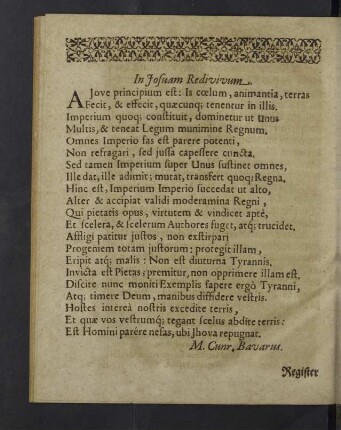 In Josuam Redivivum.
A Jove principium est: Is cœlum, animantia, terras
Fecit, & effecit, quæcunq; tenentur in illis.
Imperium quoq; constituit, dominetur ut Unus
Multis, & teneat Legum munimine Regnum.
Omnes Imperio fas est parere potenti,
Non refragari, sed jussa capessere cuncta.
Sed tamen Imperium super Unus sustinet omnes,
Ille dat, ille adimit; mutat, transfert quoq; Regna.
Hinc est, Imperium Imperio succedat ut alto,
Alter & accipiat validi moderamina Regni,
Qui pietatis opus, virtutem & vindicet aptè,
Et scelera, & scelerum Authores fuget, atq; trucidet.
Affligi patitur justos, non exstirpari
Progeniem totam justorum: protegit illam,
Eripit atq; malis: Non est diuturna Tyrannis.
Invicta est Pietas; premitur, non opprimere illam est.
Discite nunc moniti Exemplis sapere ergò Tyranni,
Atq; timere Deum, manibus diffidere vestris.
Hostes intereà nostris excedite terris,
Et quæ vos vestrumq; tegant scelus abdite terris:
Est Homini parêre nefas, ubi Jhova repugnat.
M. Cunr. Bavarus.
Register